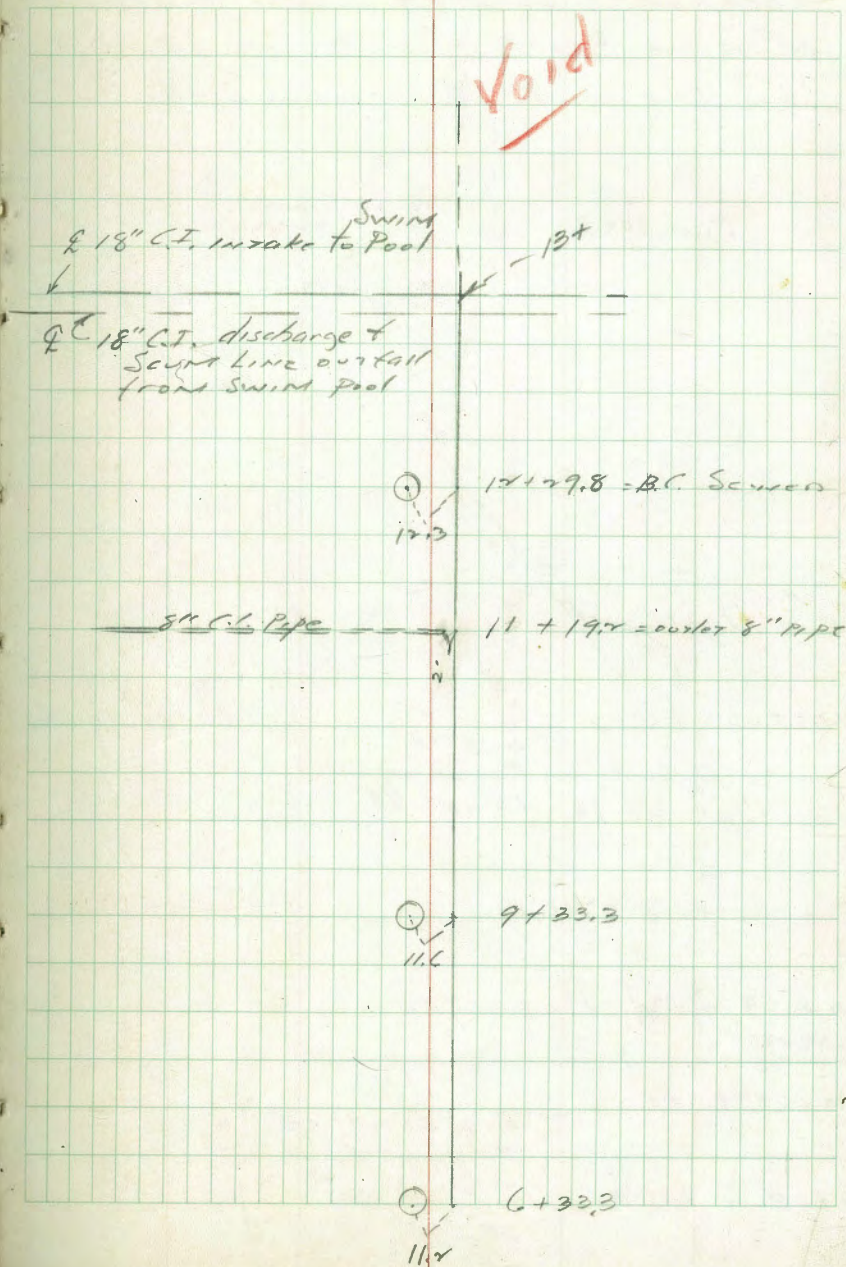 Void
Swim
℄ 18" C.I. intake to Pool
13+
℄ 18" C.I. discharge &
Scum Line outfall
from Swim Pool
12+29.8 = B.C. Sewer
12.3
8" C.I. Pipe
11 + 19.2 = outlet 8" Pipe
2'
9+33.3
11.6
6+33.3
11.2